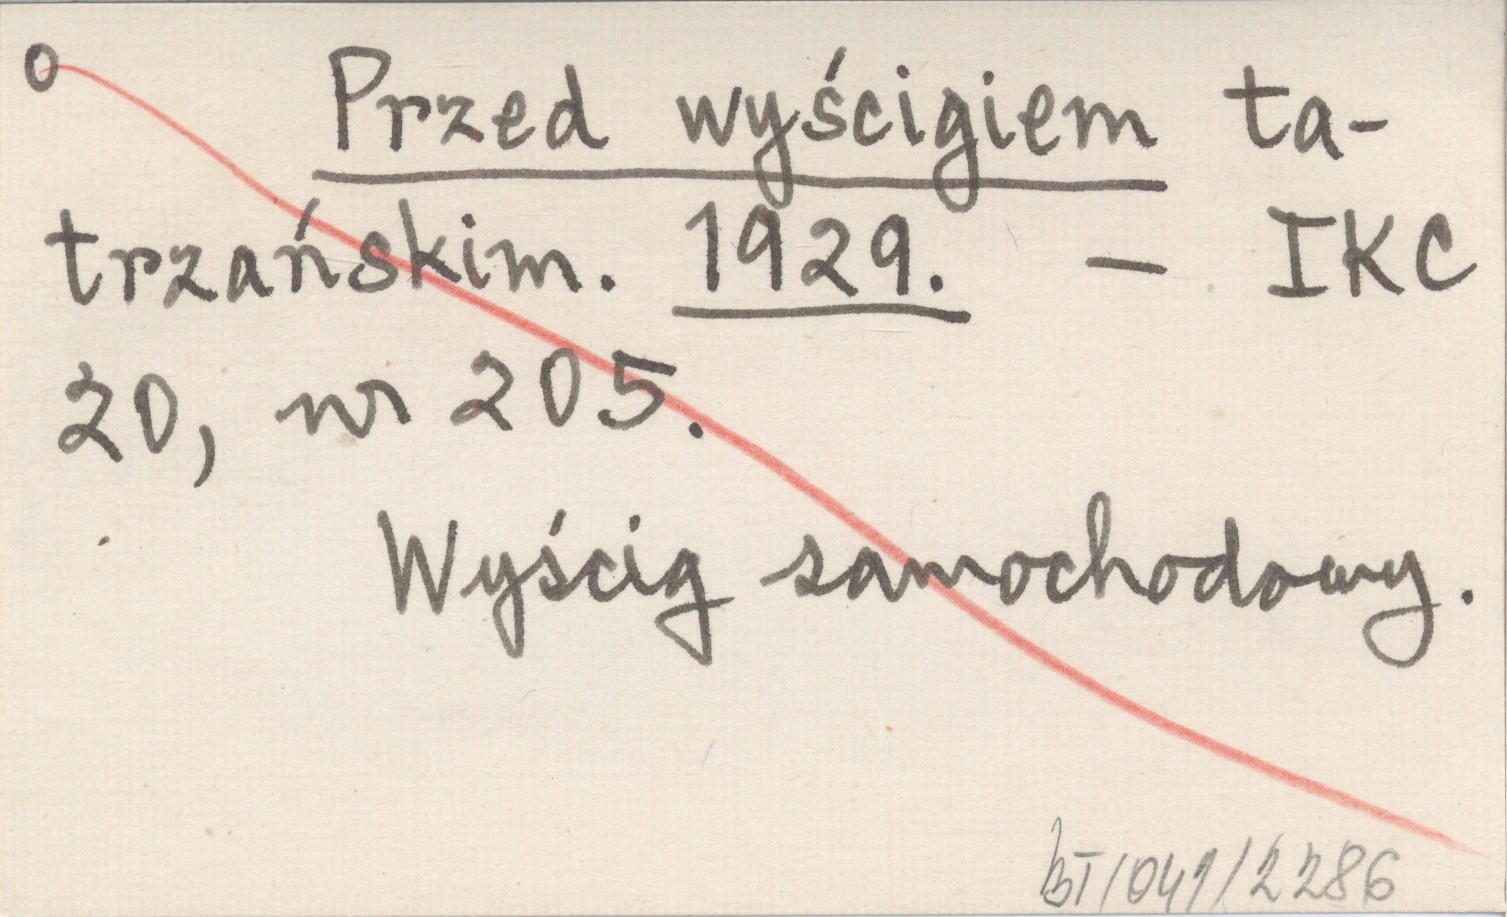 o Przed wyścigiem ta-
trzańskim. 1929. – IKC
20, nr 205.
Wyścig samochodowy.
BT/041/2286